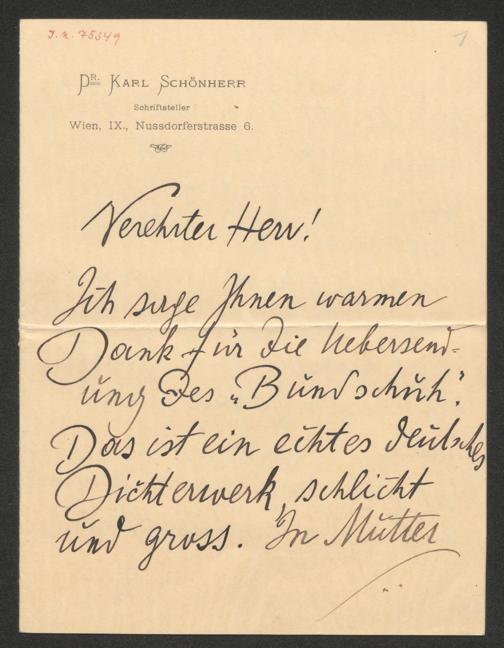 J.N. 75549
1
DR. KARL SCHÖNHERR
Schriftsteller
Wien, IX., Nussdorferstrasse 6.
Verehrter Herr!
Ich sage Ihnen warmen
Dank für die Uebersend-
ung des „Bundschuh".
Das ist ein echtes deutsches
Dichterwerk, schlicht
und gross. In Mutter